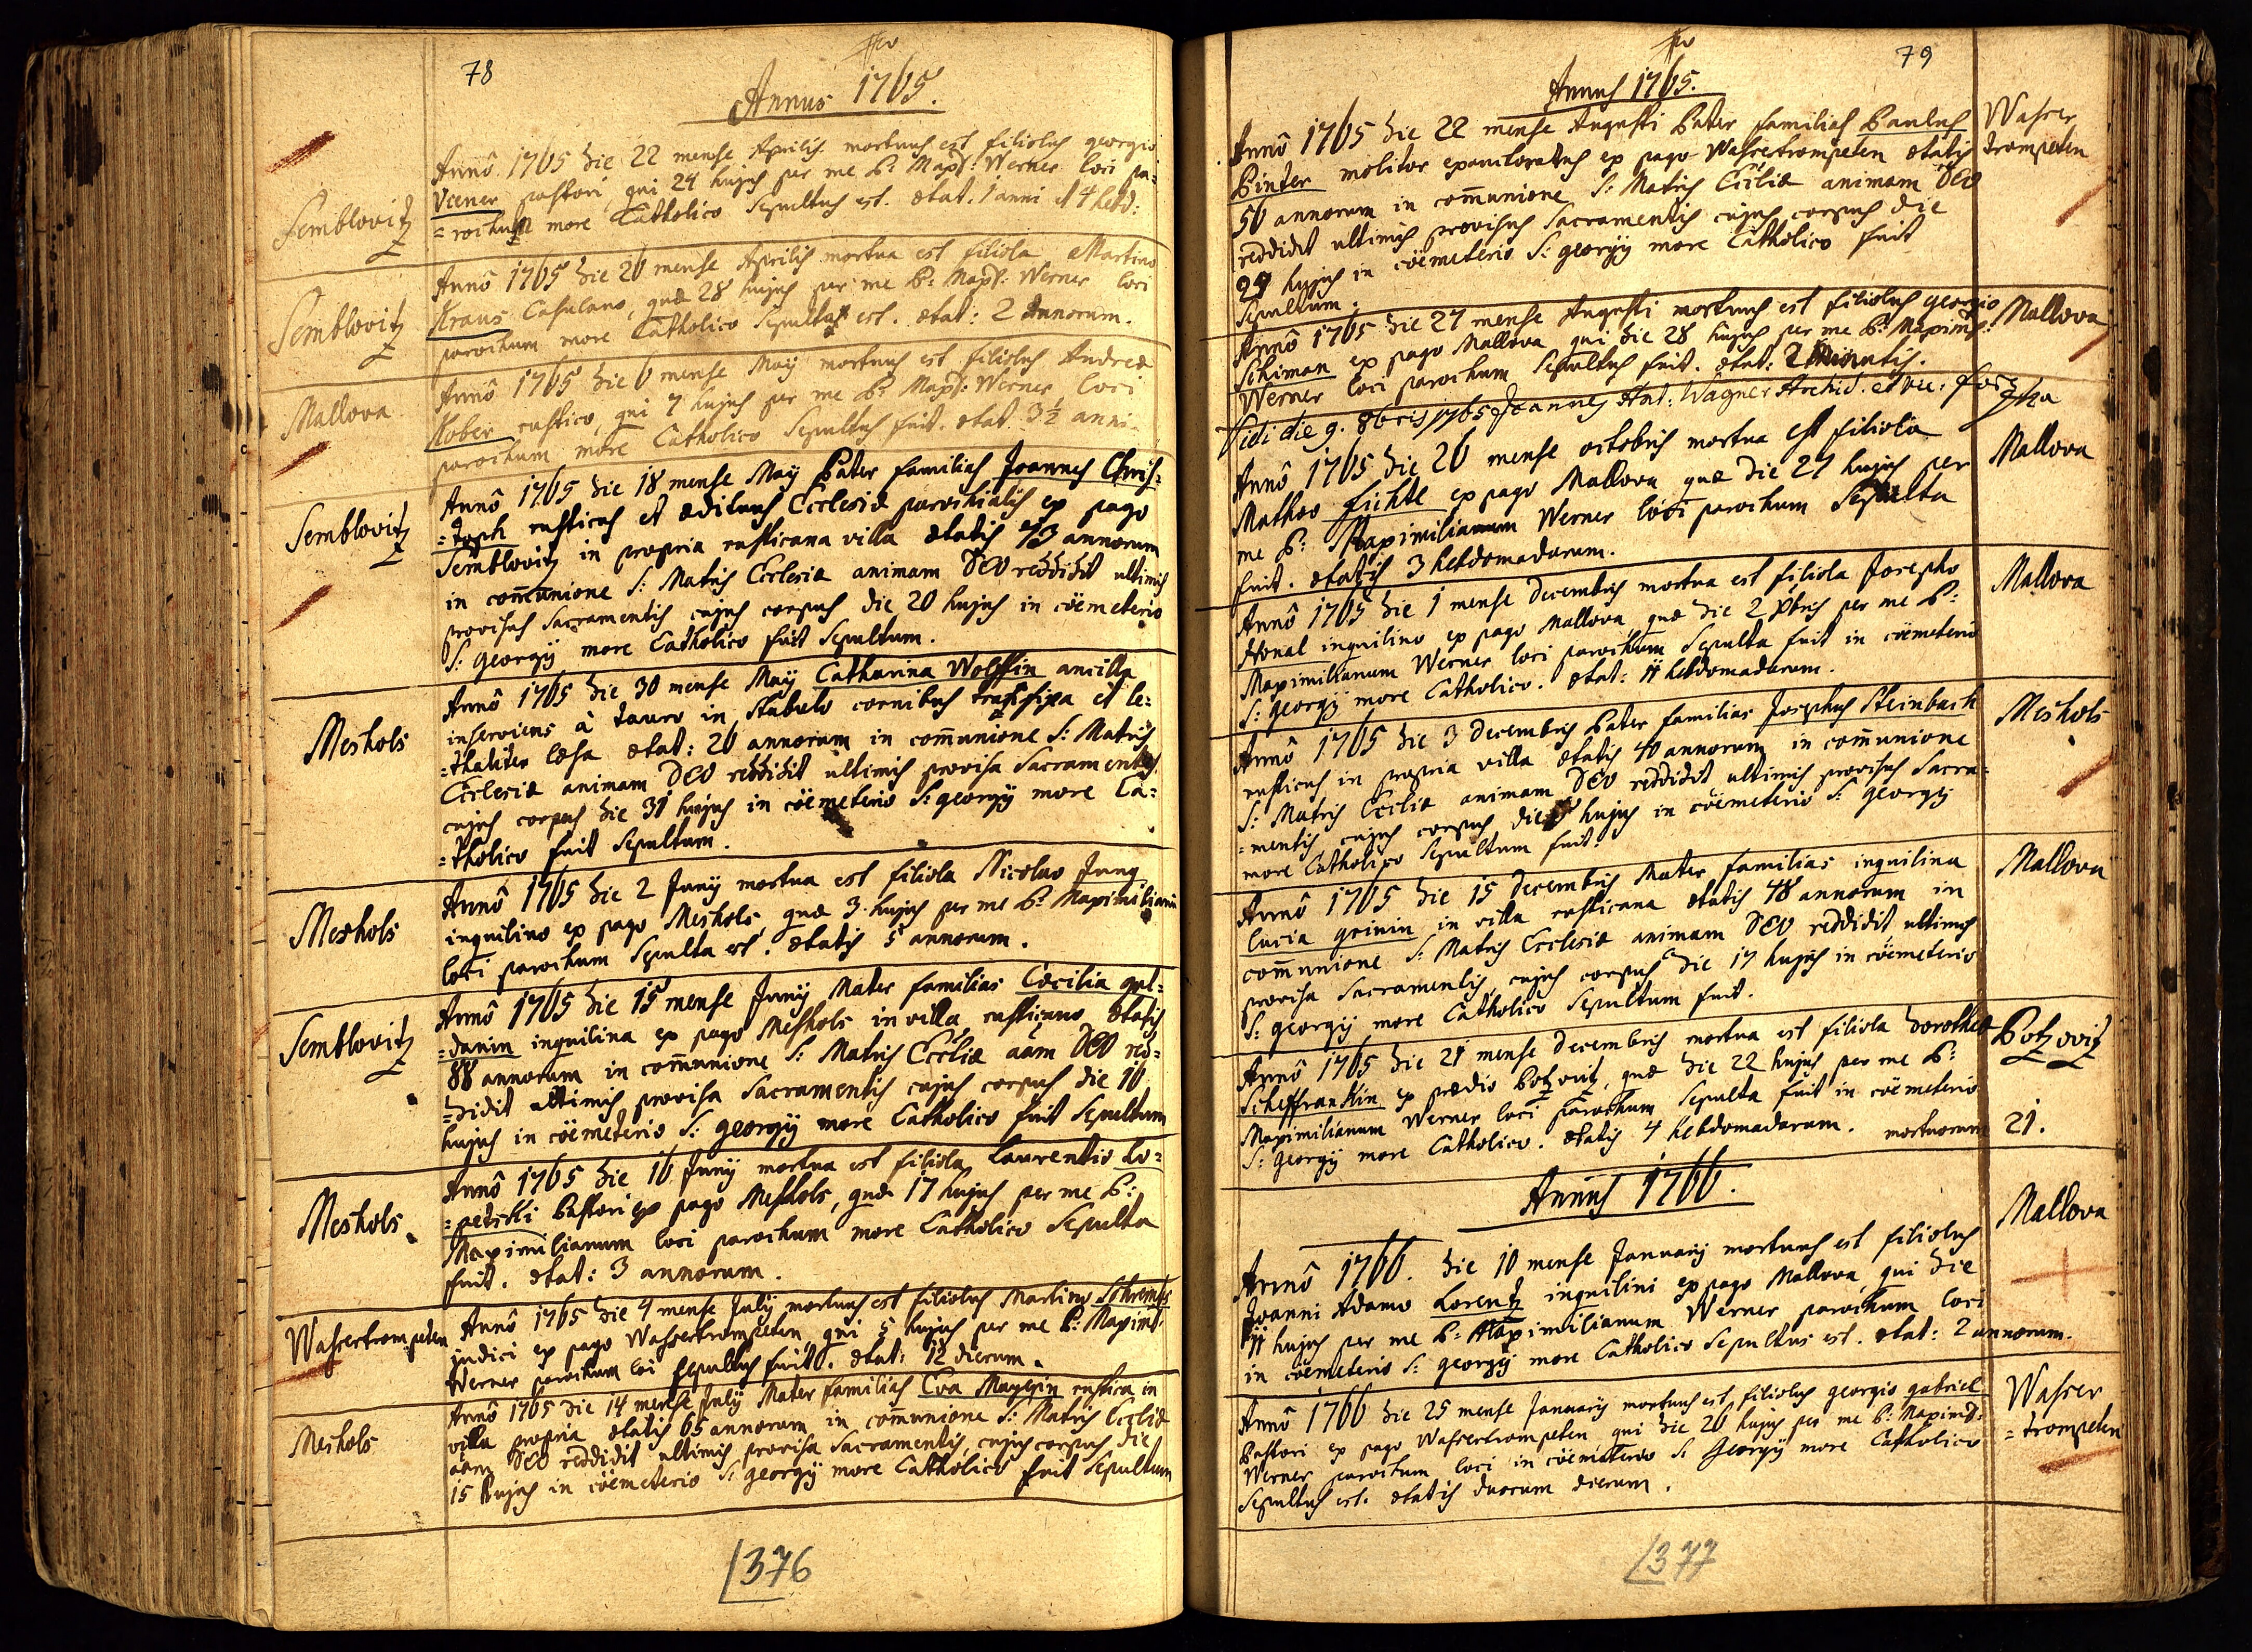 78
Annus 1765.
Semblovitz
Annô 1765 die 22 mense Aprilis mortuus est filiolus georgio
pastori, qui 24 hujus per me P: Maxl: Werner loci pa=
=rochum more Catholico Sepultus est. ætat. 1 anni et 4 hebd:
Semblovitz
Annô 1765 die 26 mense Aprilis mortua est filiola Martino
Kraus Casulano, quæ 28 hujus per me P: Maxl: Werner loci
parochum more Catholico Sepulta est. ætat: 2 annorum.
Mallova
Annô 1765 die 6 mense Maÿ mortuus est filiolus Andreæ
Kober rustico, qui 7 hujus per me P: Maxl: Werner loci
parochum more Catholico Sepultus fuit. ætat. 3½ anni.
Semblovitz
Annô 1765 die 18 mense Maÿ Pater familias Joannes Chris=
=toph rusticus et ædituus Ecclesiæ parochialis ex pago
Semblovitz in propria rusticana villa ætatis 73 annorum
in com̄unione S: Matris Ecclesiæ animam DEO reddidit ultimis
provisus Sacramentis cujus corpus die 20 hujus in cöemeterio
S: georgÿ more Catholico fuit Sepultum.
Meshols
Annô 1765 die 30 mense Maÿ Catharina Wolffin ancilla
inserviens à tauro in stabulo cornibus transfixa et le=
=thaliter læsa ætat: 20 annorum in com̄unione S: Matris
Ecclesiæ animam DEO reddidit ultimis provisa Sacramentis
cujus corpus die 31 hujus in cöemeterio S: georgÿ more Ca=
=tholico fuit Sepultum.
Meshols
Annô 1765 die 2 Junÿ mortua est filiola Nicolao Jung
inquilino ex pago Meshols, quæ 3 hujus per me P: Maximilianum
loci parochum Sepulta est. ætatis 5 annorum.
Semblovitz
Annô 1765 die 15 mense Junÿ Mater familias Cæcilia gul=
=danin inquilina ex pago Meshols in villa rusticano ætatis
88 annorum in com̄unione S: Matris Eccliæ aām DEO red=
=didit ultimis provisa Sacramentis cujus corpus die 16
hujus in cöemeterio S: georgÿ more Catholico fuit Sepultum
Meshols
Annô 1765 die 16 Junÿ mortua est filiola Laurentio Lo=
=petski Pastori ex pago Meshols, quæ 17 hujus per me P:
Maximilianum loci parochum more Catholico Sepulta
fuit. ætat: 3 annorum.
Wasrertrompeten
Annô 1765 die 4 mense Julÿ mortuus est filiolus Martino
judici ex pago Wasrertrompeten qui 5 hujus per me P: Maximil:
Werner parochum loi sepultus fuit. ætat: 12 dierum.
Meshols
Annô 1765 die 14 mense Julÿ Mater familias Eva Mayerin rustica in
villa propria ætatis 65 annorum in com̄unione S: Matris Eccliæ
aām DEO reddidit ultimis provisa Sacramentis, cujus corpus die
15 hujus in cöemeterio S: georgÿ more Catholico fuit Sepultum
376
79
Annus 1765.
Annô 1765 die 22 mense Augusti Pater familias Paulus
Wasrer
trompeten
Pinter molitor exauctoratus ex pago Wasrertrompeten ætatis
50 annorum in com̄unione S: Matris Eccliæ animam DEO
reddidit ultimis provisus Sacramentis cujus corpus die
24 hujus in cöemeterio S: georgÿ more Catholico fuit
Sepultum.
Annô 1765 die 27 mense Augusti mortuus est filiolus georgio
Mallova
Schiman ex pago Mallova qui die 28 hujus per me P: Maximil:
Werner loci parochum Sepultus fuit. ætat: 2 minutis.
Vidi die 9. 8bris 1765 Joannes Ant: Wagner Archid. et vic: for:
Annô 1765 die 26 mense octobris mortua est filiola
Mallova
Matheo Fichtl ex pago Mallova quæ die 27 hujus per
me P: Maximilianum Werner loci parochum Sepulta
fuit. ætatis 3 hebdomadarum.
Annô 1765 die 1 mense Decembris mortua est filiola Josepho
Mallova
Honal inquilino ex pago Mallova quæ die 2 Xbris per me P:
Maximilianum Werner loci parochum Sepulta fuit in cöemeterio
S: georgÿ more Catholico. ætat: 11 hebdomadarum.
Annô 1765 die 3 Decembris Pater familias Josephus Steinbach
Meshols
rusticus in propria villa ætatis 40 annorum in com̄unione
S: Matris Eccliæ animam DEO reddidit ultimis provisus Sacra=
=mentis, cujus corpus die hujus in cöemeterio S: georgÿ
more Catholico Sepultum fuit.
Annô 1765 die 15 Decembris Mater familias inquilina
Mallova
Lucia grinin in villa rusticana ætatis 48 annorum in
com̄unione S: Matris Ecclesiæ animam DEO reddidit ultimis
provisa Sacramentis, cujus corpus die 17 hujus in cöemeterio
S: georgÿ more Catholico Sepultum fuit.
Annô 1765 die 21 mense Decembris mortua est filiola Dorotheæ
Potzovitz
Scheffrankin ex prædio Potzovitz, quæ die 22 hujus per me P:
Maximilianum Werner loci parochum Sepulta fuit in cöemeterio
S: georgÿ more Catholico. ætatis 4 hebdomadarum. mortuorum 21.
Annus 1766.
Annô 1766. die 10 mense Januarÿ mortuus est filiolus
Mallova
Joanni Adamo Lorentz inquilini ex pago Mallova, qui die
11 hujus per me P: Maximilianum Werner parochum loci
in cöemeterio S: georgÿ more Catholico Sepultus est. ætat: 2 annorum.
Annô 1766 die 25 mense Januarÿ mortuus est filiolus georgio gabriel
Wasrer
=trompeten
Pastori ex pago Wasrertrompeten qui die 26 hujus per me P: Maximil:
Werner parochum loci in cöemeterio S: Georgÿ more Catholico
Sepultus est. ætatis duorum dierum.
377